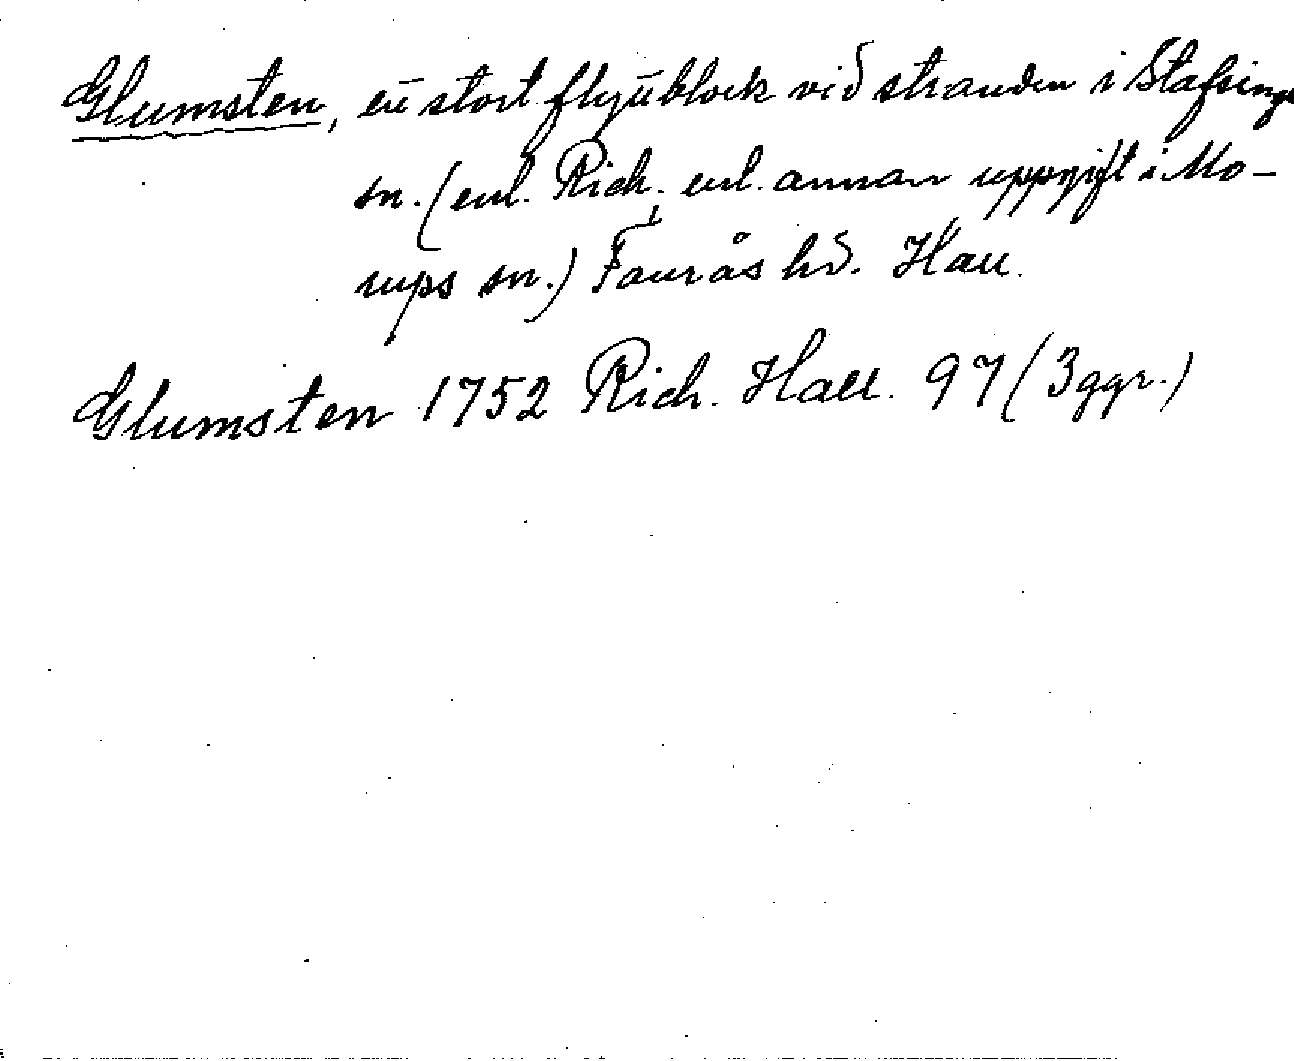 Glumsten, ett stort flyttblock vid stranden i Stafsinge
sn. (enl. Rich., enl. annan uppgift i Mo-
rups sn.) Faurås hd. Hall.
Glumsten 1752 Rich. Hall. 97 (3ggr.)